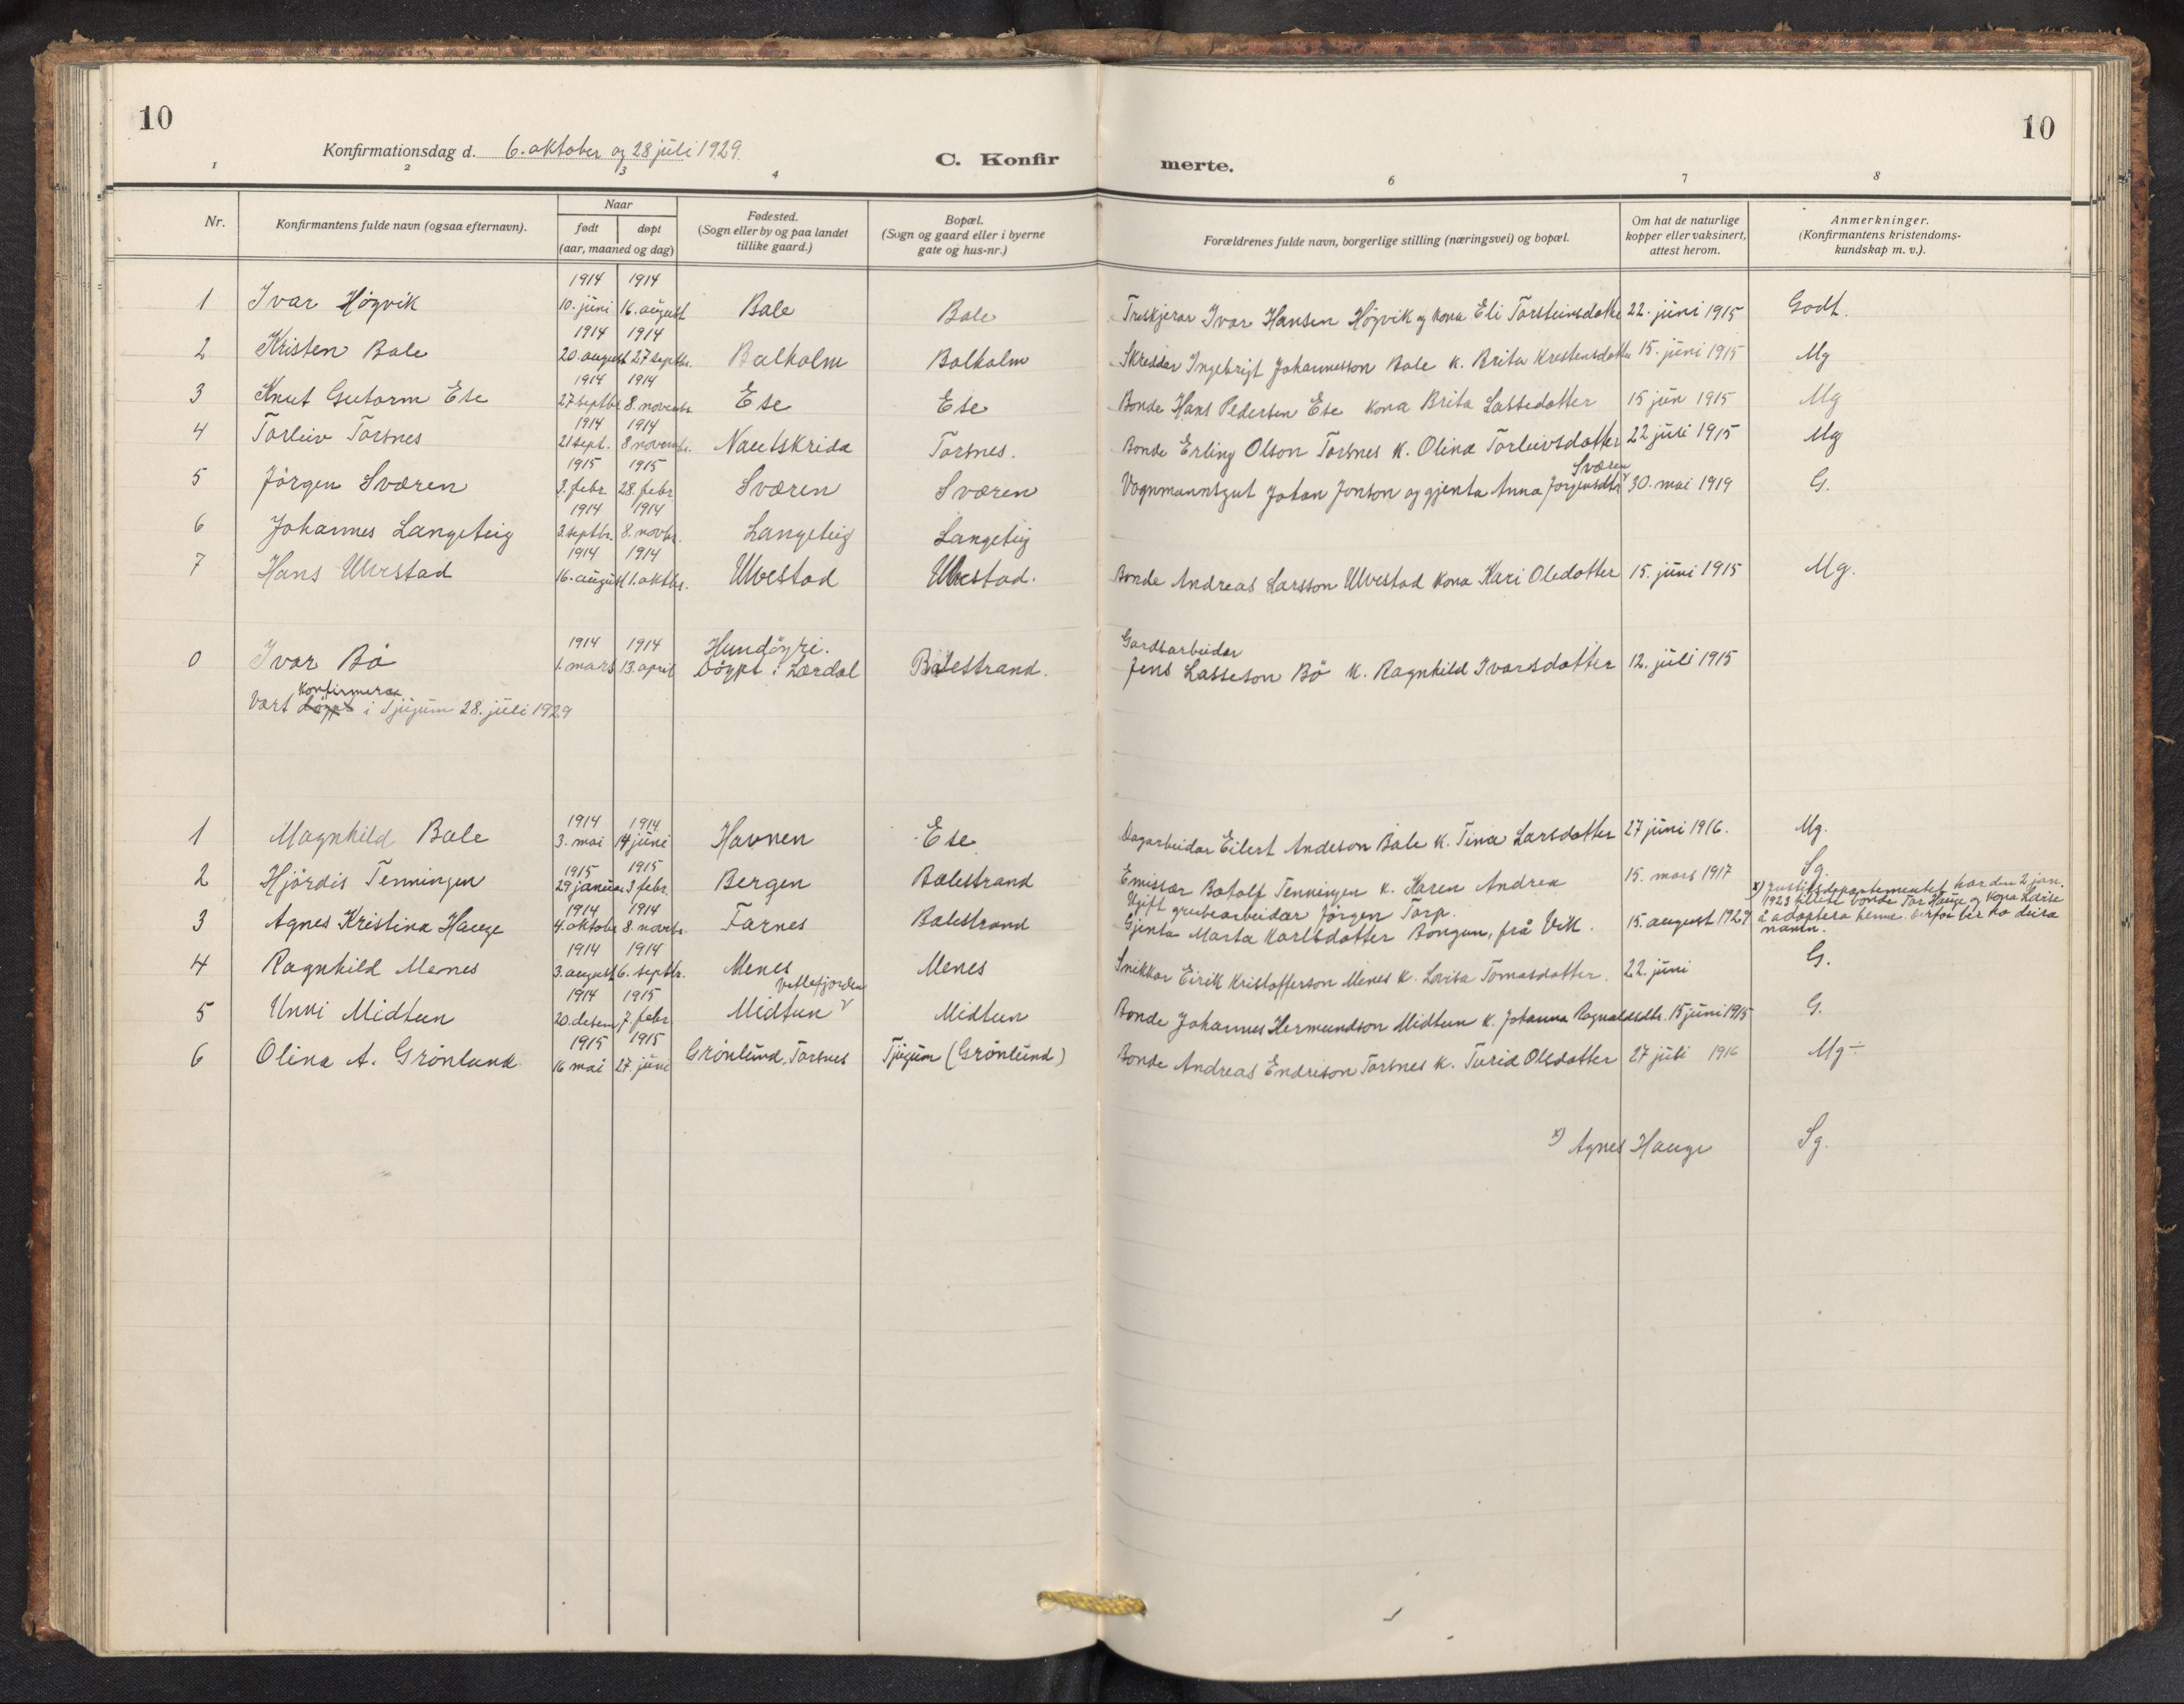 10
10
Konfirmationsdag d. 6. oktober og 28 juli 1929.
C. Konfir merte.
1 2 3 4 6 7 8
Nr.
Konfirmantens fulde navn (ogsaa efternavn).
Naar
født døpt
(aar, maaned og dag)
Fødested.
(Sogn eller by og paa landet
tillike gaard.)
Bopæl.
(Sogn og gaard eller i byerne
gate og hus-nr.)
Forældrenes fulde navn, borgerlige stilling (næringsvei) og bopæl.
Om hat de naturlige
kopper eller vaksinert,
attest herom.
Anmerkninger.
(Konfirmantens kristendoms-
kundskap m. v.).
1914 1914
1 Ivar Høgvik 10. juni 16. august Bale Bale Treskjerar Ivar Hansen Høgvik og kona Eli Torsteinsdotte 22. juni 1915 Godt.
1914 1914
2 Kristen Bale 20. august 27 septbr. Balholm Balholm Skreddar Ingebrigt Johannesson Bale k. Brita Krestensdotter 15. juni 1915 Mg
1914 1914
3 Knut Gutorm Ese 27 septbr 8. novembr. Ese Ese Bonde Hans Pedersen Ese kona Brita Lassedotter 15 jun 1915 Mg
1914 1914
4 Torleiv Torsnes 21 sept. 8 novembr. Nautskrida Torsnes. Bonde Erling Olson Torsnes k. Olina Torleivsdotter 22 juli 1915 Mg
1915 1915
Sværen
5 Jørgen Sværen 3. febr. 28. febr. Sværen Sværen Vognmannsgut Johan Jonson og gjenta Anna Jørgensdtr 30. mai 1919 G.
1914 1914
6 Johannes Langeteig 3. septbr. 8. novbr. Langeteig Langeteig
1914 1914
7 Hans Ulvestad 16. august 1. oktbr. Ulvestad Ulvestad. Bonde Andreas Larsson Ulvestad kona Kari Oledotter 15. juni 1915 Mg.
1914 1914 Hundøyri. Gardsarbeidar
0 Ivar Bø 1. mars 13. april Døypt i Lærdal Balestrand. Jens Lasseson Bø k. Ragnhild Ivarsdotter 12. juli 1915
konfirmera
Vart døypt i Tjugum 28. juli 1929
1914 1914
1 Magnhild Bale 3. mai 14 juni Havnen Ese Dagarbeidar Eilert Andeson Bale k. Tina Larsdotter 27 juni 1916. Mg.
1915 1915
2 Hjørdis Tenningen 29 januar 3 febr. Bergen Balestrand Emissær Botolf Tenningen k. Karen Andrea 15. mars 1917 Sg.
1914 1914 Ugift grubearbeidar Jörgen Torp.
3 Agnes Kristina Hauge 4. oktobr 8. novbr. Farnes Balestrand Gjenta Marta Karlsdotter Bongun, frå Vik. 15. august 1929
x) Justitsdepartementet har den 2 jan.
1923 tillete bonde Tor Hauge og kona Larise
å adoptera henne. Derfor ber ho deira
namn.
1914 1914
4 Ragnhild Menes 3. august 6. septbr. Menes Menes Snikkar Eirik Kristofferson Menes k. Lovisa Tomasdotter. 22. juni G.
1914 1915 Vetlefjorden
5 Unni Midtun 20. desem 7. febr. Midtun Midtun Bonde Johannes Hermundson Midtun k. Johanna Ragnaldsdtr. 15 juni 1915 G.
1915 1915
6 Olina A. Grønlund 16 mai 27. juni Grønlund, Torsnes Tjugum (Grønlund) Bonde Andreas Endreson Torsnes k. Turid Olsdotter 27 juli 1916 Mg ÷
x) Agnes Hauge Sg.